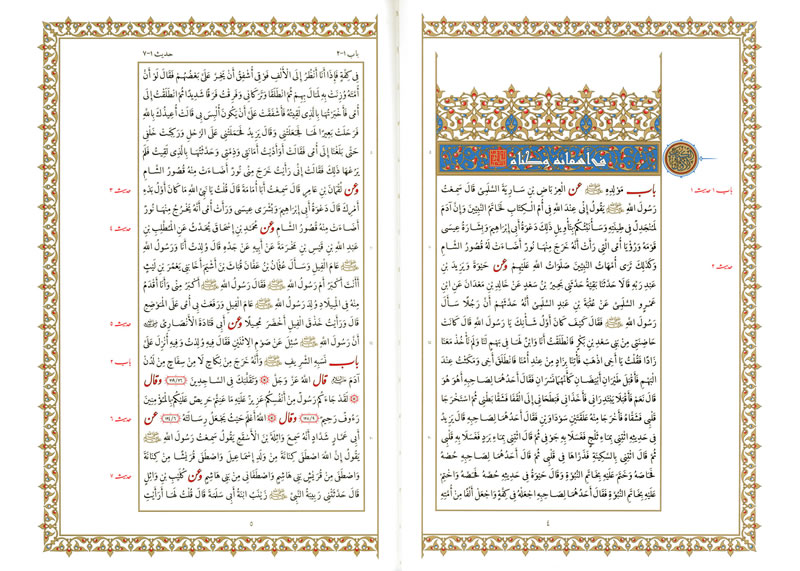 باب مَوْلِدِهِ ﷺ عن الْعِرْبَاضِ بْنِ سَارِيَةَ السُّلَمِيِّ قَالَ سَمِعْتُ
باب ١ حديث ١
رَسُولَ اللهِ ﷺ يَقُولُ إِنِّي عِنْدَ اللهِ فِي أُمِّ الْكِتَابِ لَخَاتَمُ النَّبِيِّينَ وَإِنَّ آدَمَ
لَمُنْجَدِلٌ فِي طِينَتِهِ وَسَأُنَبِّئُكُمْ بِتَأْوِيلِ ذَلِكَ دَعْوَةِ أَبِي إِبْرَاهِيمَ وَبِشَارَةِ عِيسَى
قَوْمَهُ وَرُؤْيَا أُمِّي الَّتِي رَأَتْ أَنَّهُ خَرَجَ مِنْهَا نُورٌ أَضَاءَتْ لَهُ قُصُورُ الشَّامِ
وَكَذَلِكَ تَرَى أُمَّهَاتُ النَّبِيِّينَ صَلَوَاتُ اللهِ عَلَيْهِمْ وعن حَيْوَةَ وَيَزِيدَ بْنِ
حديث ٢
عَبْدِ رَبِّهِ قَالَا حَدَّثَنَا بَقِيَّةُ حَدَّثَنِي بَحِيرُ بْنُ سَعْدٍ عَنْ خَالِدِ بْنِ مَعْدَانَ عَنِ ابْنِ
عَمْرٍو السُّلَمِيِّ عَنْ عُتْبَةَ بْنِ عَبْدٍ السُّلَمِيِّ أَنَّهُ حَدَّثَهُمْ أَنَّ رَجُلًا سَأَلَ
رَسُولَ اللهِ ﷺ فَقَالَ كَيْفَ كَانَ أَوَّلُ شَأْنِكَ يَا رَسُولَ اللهِ قَالَ كَانَتْ
حَاضِنَتِي مِنْ بَنِي سَعْدِ بْنِ بَكْرٍ فَانْطَلَقْتُ أَنَا وَابْنٌ لَهَا فِي بَهْمٍ لَنَا وَلَمْ نَأْخُذْ مَعَنَا
زَادًا فَقُلْتُ يَا أَخِي اذْهَبْ فَأْتِنَا بِزَادٍ مِنْ عِنْدِ أُمِّنَا فَانْطَلَقَ أَخِي وَمَكَثْتُ عِنْدَ
الْبَهْمِ فَأَقْبَلَ طَيْرَانِ أَبْيَضَانِ كَأَنَّهُمَا نَسْرَانِ فَقَالَ أَحَدُهُمَا لِصَاحِبِهِ أَهُوَ هُوَ
قَالَ نَعَمْ فَأَقْبَلَا يَبْتَدِرَانِي فَأَخَذَانِي فَبَطَحَانِي إِلَى الْقَفَا فَشَقَّا بَطْنِي ثُمَّ اسْتَخْرَجَا
قَلْبِي فَشَقَّاهُ فَأَخْرَجَا مِنْهُ عَلَقَتَيْنِ سَوْدَاوَيْنِ فَقَالَ أَحَدُهُمَا لِصَاحِبِهِ قَالَ يَزِيدُ
فِي حَدِيثِهِ ائْتِنِي بِمَاءِ ثَلْجٍ فَغَسَلَا بِهِ جَوْفِي ثُمَّ قَالَ ائْتِنِي بِمَاءِ بَرَدٍ فَغَسَلَا بِهِ قَلْبِي
ثُمَّ قَالَ ائْتِنِي بِالسَّكِينَةِ فَذَرَّاهَا فِي قَلْبِي ثُمَّ قَالَ أَحَدُهُمَا لِصَاحِبِهِ حُصْهُ
فَحَاصَهُ وَخَتَمَ عَلَيْهِ بِخَاتَمِ النُّبُوَّةِ وَقَالَ حَيْوَةُ فِي حَدِيثِهِ حُصْهُ فَحُصْهُ وَاخْتِمْ
عَلَيْهِ بِخَاتَمِ النُّبُوَّةِ فَقَالَ أَحَدُهُمَا لِصَاحِبِهِ اجْعَلْهُ فِي كِفَّةٍ وَاجْعَلْ أَلْفًا مِنْ أُمَّتِهِ
٤
باب ١-٢
حديث ١-٧
فِي كِفَّةٍ فَإِذَا أَنَا أَنْظُرُ إِلَى الْأَلْفِ فَوْقِي أُشْفِقُ أَنْ يَخِرَّ عَلَيَّ بَعْضُهُمْ فَقَالَ لَوْ أَنَّ
أُمَّتَهُ وُزِنَتْ بِهِ لَمَالَ بِهِمْ ثُمَّ انْطَلَقَا وَتَرَكَانِي وَفَرِقْتُ فَرَقًا شَدِيدًا ثُمَّ انْطَلَقْتُ إِلَى
أُمِّي فَأَخْبَرْتُهَا بِالَّذِي لَقِيتُهُ فَأَشْفَقَتْ عَلَيَّ أَنْ يَكُونَ أُلْبِسَ بِي قَالَتْ أُعِيذُكَ بِاللهِ
فَرَحَلَتْ بَعِيرًا لَهَا فَجَعَلَتْنِي وَقَالَ يَزِيدُ فَحَمَلَتْنِي عَلَى الرَّحْلِ وَرَكِبَتْ خَلْفِي
حَتَّى بَلَغْنَا إِلَى أُمِّي فَقَالَتْ أَوَأَدَّيْتُ أَمَانَتِي وَذِمَّتِي وَحَدَّثَتْهَا بِالَّذِي لَقِيتُ فَلَمْ
يَرُعْهَا ذَلِكَ فَقَالَتْ إِنِّي رَأَيْتُ خَرَجَ مِنِّي نُورٌ أَضَاءَتْ مِنْهُ قُصُورُ الشَّامِ
وعن لُقْمَانَ بْنِ عَامِرٍ قَالَ سَمِعْتُ أَبَا أُمَامَةَ قَالَ قُلْتُ يَا نَبِيَّ اللهِ مَا كَانَ أَوَّلُ بَدْءِ
حديث ٣
أَمْرِكَ قَالَ دَعْوَةُ أَبِي إِبْرَاهِيمَ وَبُشْرَى عِيسَى وَرَأَتْ أُمِّي أَنَّهُ يَخْرُجُ مِنْهَا نُورٌ
أَضَاءَتْ مِنْهُ قُصُورُ الشَّامِ وعن مُحَمَّدِ بْنِ إِسْحَاقَ يُحَدِّثُ عَنِ الْمُطَّلِبِ بْنِ
حديث ٤
عَبْدِ اللهِ بْنِ قَيْسِ بْنِ مَخْرَمَةَ عَنْ أَبِيهِ عَنْ جَدِّهِ قَالَ وُلِدْتُ أَنَا وَرَسُولُ اللهِ ﷺ
عَامَ الْفِيلِ وَسَأَلَ عُثْمَانُ بْنُ عَفَّانَ قُبَاثَ بْنَ أَشْيَمَ أَخَا بَنِي يَعْمَرَ بْنِ لَيْثٍ
أَأَنْتَ أَكْبَرُ أَمْ رَسُولُ اللهِ ﷺ فَقَالَ رَسُولُ اللهِ ﷺ أَكْبَرُ مِنِّي وَأَنَا أَقْدَمُ
مِنْهُ فِي الْمِيلَادِ وُلِدَ رَسُولُ اللهِ ﷺ عَامَ الْفِيلِ وَرَفَعَتْ بِي أُمِّي عَلَى الْمَوْضِعِ
قَالَ وَرَأَيْتُ خَذْقَ الْفِيلِ أَخْضَرَ مُحِيلًا وعن أَبِي قَتَادَةَ الْأَنْصَارِيِّ
حديث ٥
أَنَّ رَسُولَ اللهِ ﷺ سُئِلَ عَنْ صَوْمِ الِاثْنَيْنِ فَقَالَ فِيهِ وُلِدْتُ وَفِيهِ أُنْزِلَ عَلَيَّ
باب نَسَبِهِ الشَّرِيفِ ﷺ وَأَنَّهُ خَرَجَ مِنْ نِكَاحٍ لَا مِنْ سِفَاحٍ مِنْ لَدُنْ
باب ٢
آدَمَ قال اللهُ عَزَّ وَجَلَّ وَتَقَلُّبَكَ فِي السَّاجِدِينَ وقال
لَقَدْ جَاءَكُمْ رَسُولٌ مِنْ أَنْفُسِكُمْ عَزِيزٌ عَلَيْهِ مَا عَنِتُّمْ حَرِيصٌ عَلَيْكُمْ بِالْمُؤْمِنِينَ
رَءُوفٌ رَحِيمٌ وقال اللهُ أَعْلَمُ حَيْثُ يَجْعَلُ رِسَالَتَهُ عن
حديث ٦
أَبِي عَمَّارٍ شَدَّادٍ أَنَّهُ سَمِعَ وَاثِلَةَ بْنَ الْأَسْقَعِ يَقُولُ سَمِعْتُ رَسُولَ اللهِ ﷺ
يَقُولُ إِنَّ اللهَ اصْطَفَى كِنَانَةَ مِنْ وَلَدِ إِسْمَاعِيلَ وَاصْطَفَى قُرَيْشًا مِنْ كِنَانَةَ
وَاصْطَفَى مِنْ قُرَيْشٍ بَنِي هَاشِمٍ وَاصْطَفَانِي مِنْ بَنِي هَاشِمٍ وعن كُلَيْبِ بْنِ وَائِلٍ
حديث ٧
قَالَ حَدَّثَتْنِي رَبِيبَةُ النَّبِيِّ ﷺ زَيْنَبُ ابْنَةُ أَبِي سَلَمَةَ قَالَ قُلْتُ لَهَا أَرَأَيْتِ
٥